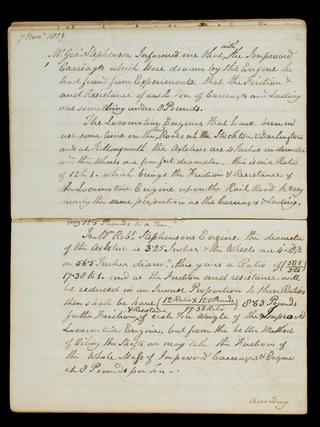 7 Novr 1829
Mr Geoe Stephenson Informed me that with the Improved
Carriages which were drawn by the Engine he
had found from Experiments that the Friction &
and Resistance of each Ton of Carriages and Lading
was something under 8 Pounds.
The Locomotive Engines that have been in
use some time on the Roads at the Stockton & Darlington
and at Killingworth the Axletrees are 4 Inches in diameter
and the Wheels are four feet diameter. this is in a Ratio
of 12 to 1. which brings the Friction & Resistance of
the Locomotive Engine upon the Rail Road to very
nearly the same proportion as the Carriages & Lading.
say 12.5 Pounds to a Ton.
In Mr Robt Stephensons Engine the diameter
of the Axletree is 3.25 Inches & the Wheels are 4-8½
or 56.5 Inches diamr, this gives a Ratio of (56.5/3.25)
17.38 to 1. and as the Friction and resistance will
be reduced in an Inverse Proportion to their Ratios
then shall be have (12 Ratio x 12.5 Pounds / 17.38 Ratio) 8.63 Pounds
for the Friction & Resistance of each Ton Weight of the Improved
Locomotive Engine, but from the better Method
of Oiling the Shafts we may take the Friction of
the Whole Mass of Improved Carriages & Engine
at 8 Pounds per Ton -.
According